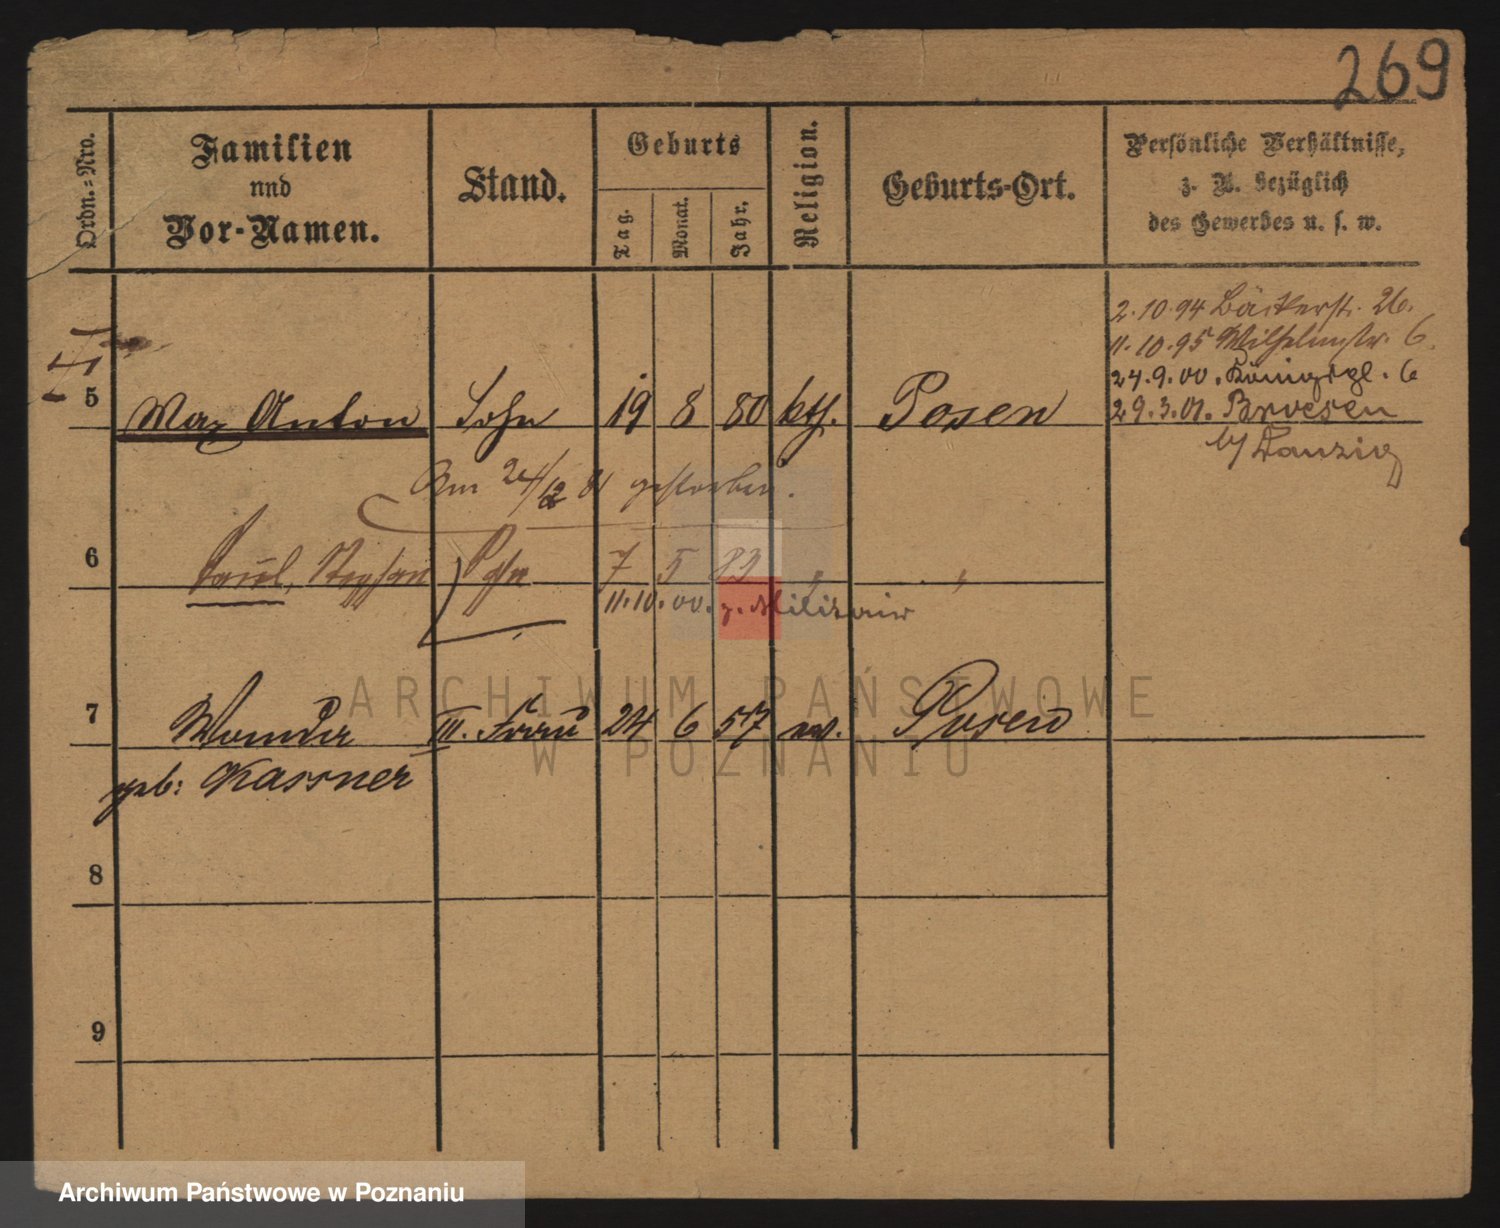 269
Ordn.=Nro.
Familien
und
Vor-Namen.
Stand.
Geburts
Tag.
Monat.
Jahr.
Religion.
Geburts-Ort.
Persönliche Verhältnisse,
z. B. bezüglich
des Gewerbes u. s. w.
2.10.94 Bäckerstr. 26.
11.10.95 Wilhelmstr. 6.
24.9.00. Königspl. 6
29.3.01. Broesen
b/ Danzig
5 Max Anton Sohn 19 8 80 kth. Posen
Am 24/12 81 gestorben.
6 Paul, Stephan Sohn 7 5 83 " "
11.10.00. z. Militair
7 Wanda III. Frau 24 6 57 ev. Posen
geb: Kassner
8
9
ARCHIWUM PAŃSTWOWE
W POZNANIU
Archiwum Państwowe w Poznaniu